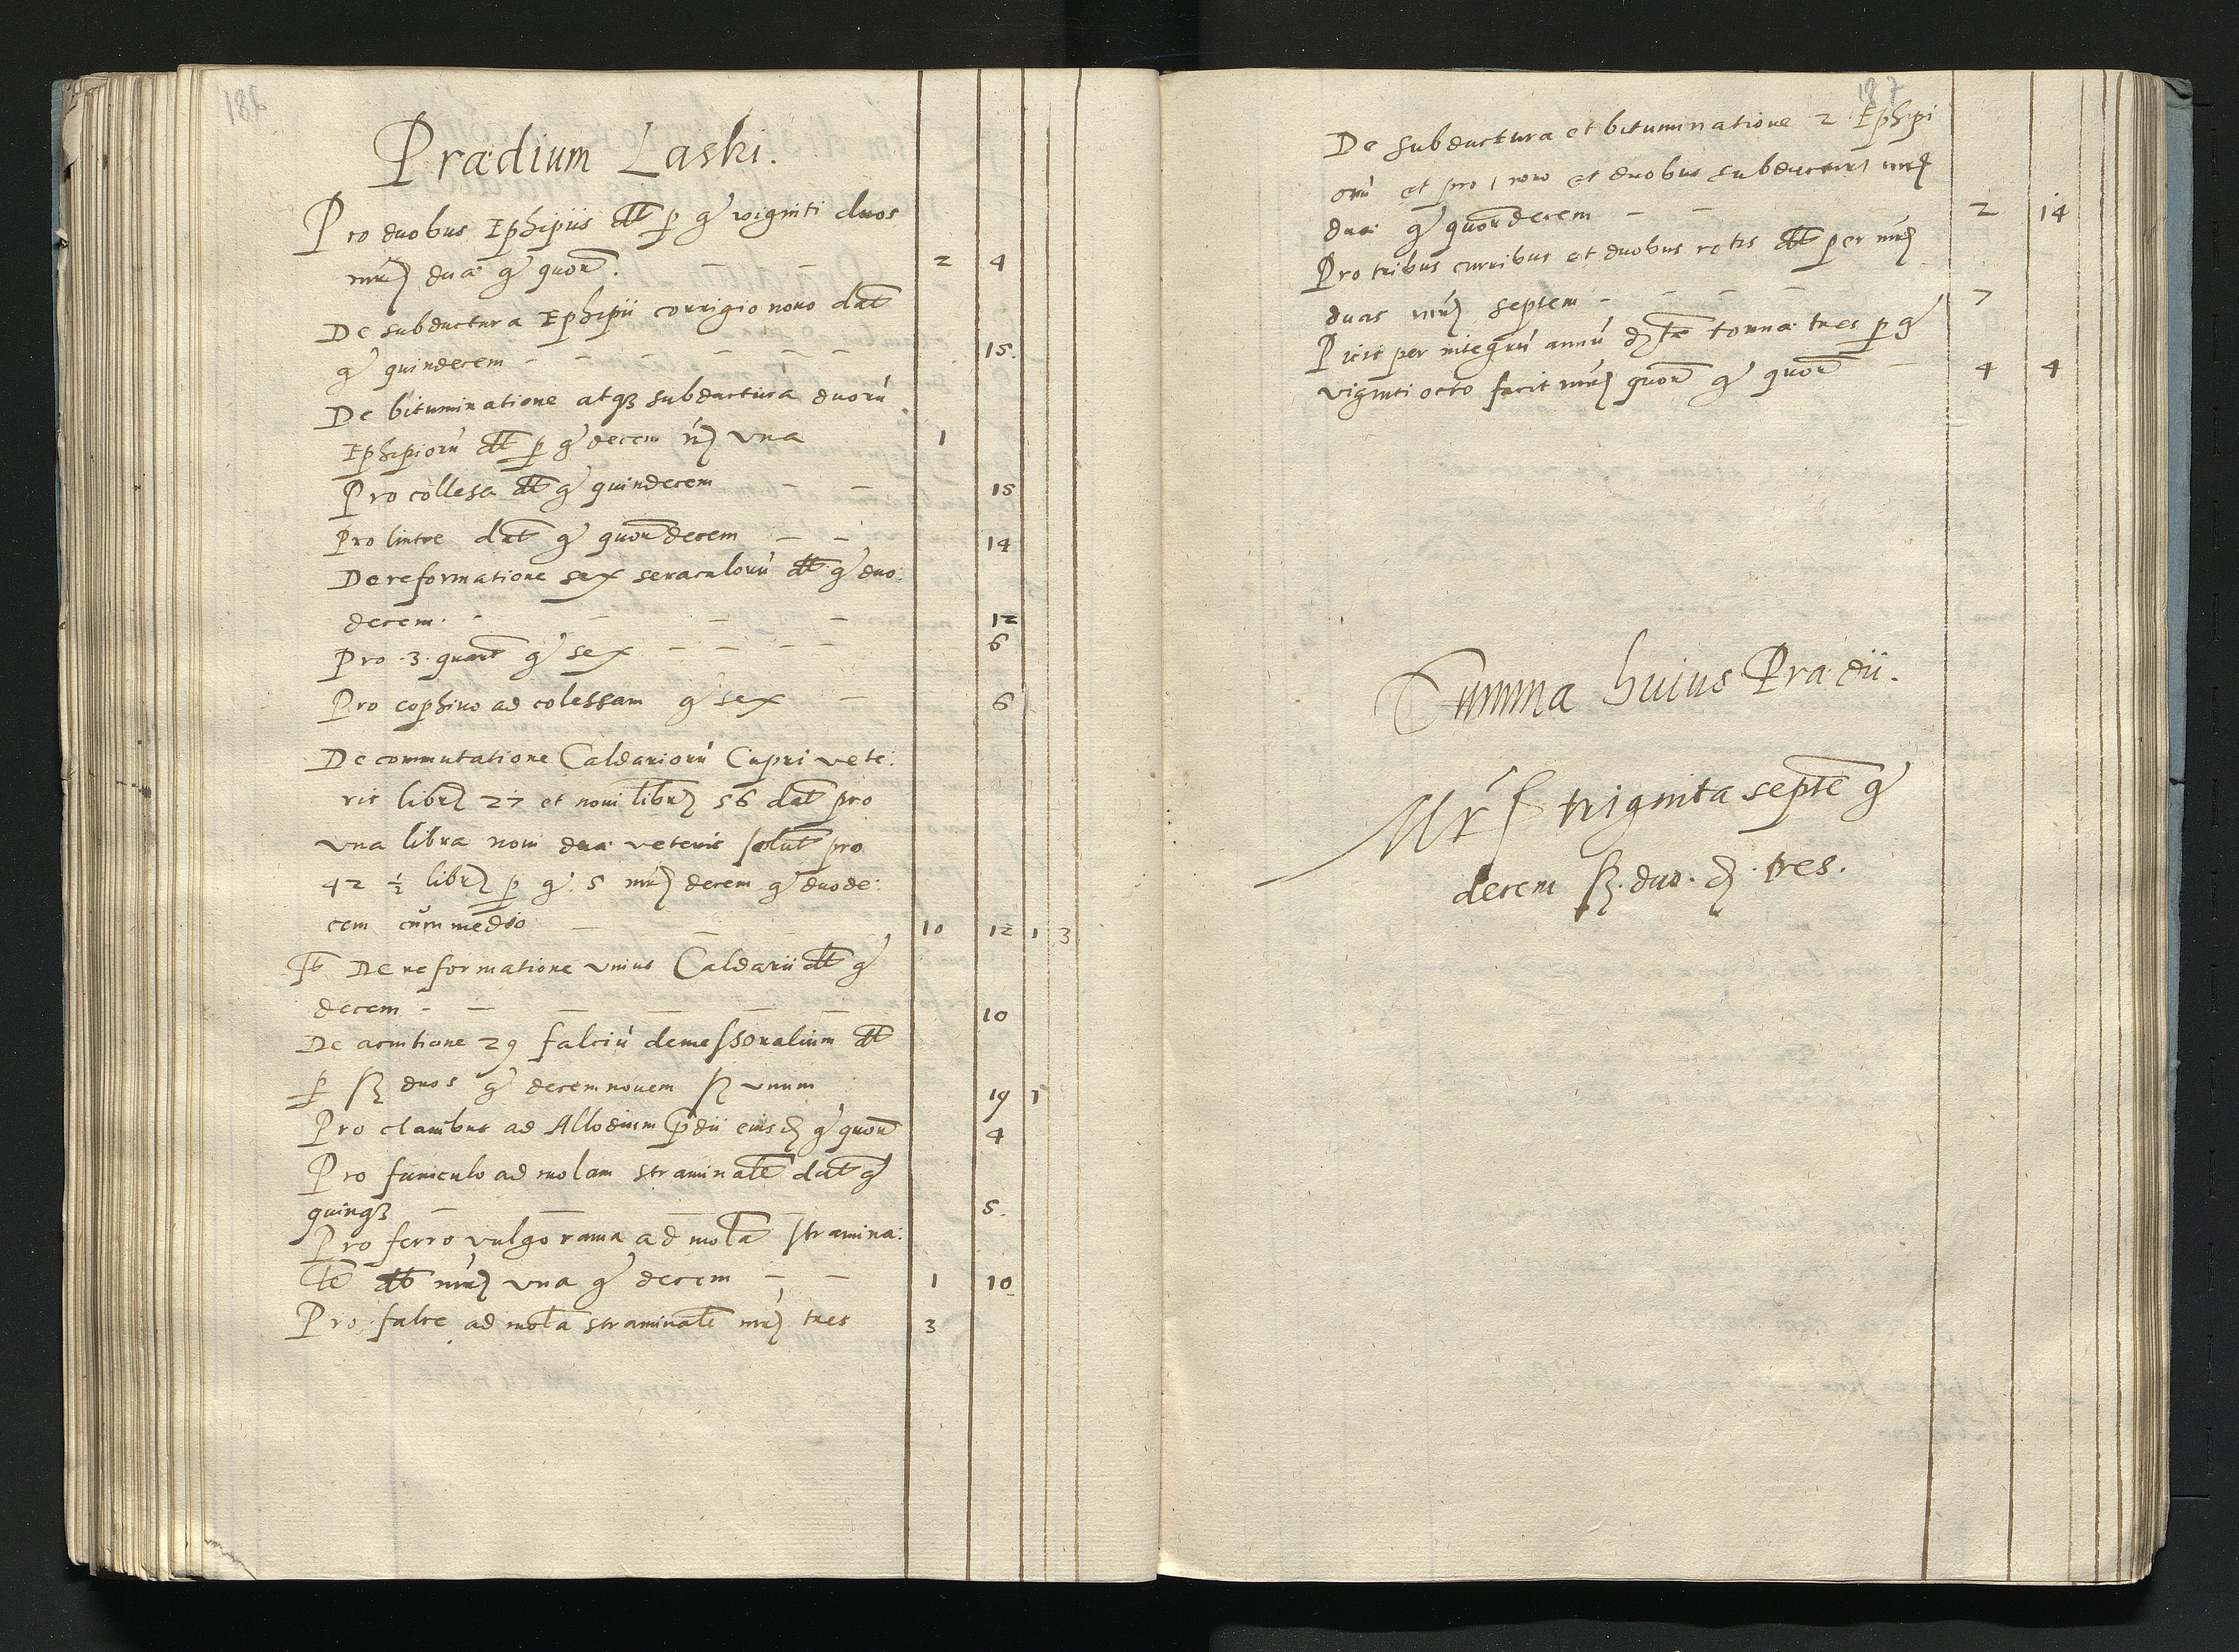 186
Prædium Laski.
Pro duobus Ephipiis dt p gr viginti duos
mr duas gr quor. 2 4
De subductura Ephipii corrigio novo dat
gr quindecem 15.
De bituminatione atq subductura duorú
Ephipiorú dt p gr decem m una 1
Pro collesa dt gr quindecem 15
Pro lintre dat gr quordecem 14
De reformatione sex seraculorú dt gr duo:
decem 12
Pro .3. quart gr sex 6
Pro cophino ad colessam gr sex 6
De commutatione Caldariorú Cupri vete:
ris libr 27 et novi libr 56 dat pro
una libra novi dua veteris solut pro
42 ½ libr p gr 5 mr decem gr duode:
cem cum medio 10 12 1 3
De reformatione unius Caldarii dt gr
decem 10
De acuitione 29 falciú demessoralium dt
p ß duos gr decem novem ß unum 19 1
Pro clavibus ad Allodium pdii eiusd gr quor 4
Pro funiculo ad molam straminale dat gr
quinq 5.
Pro ferro vulgo rama ad mola stramina:
le dt mr una gr decem 1 10
Pro falce ad mola straminale mr tres 3
187
De subductura et bituminatione 2 Ephipi
orú et pro 1 novo et duobus mr
dua gr quordecem 2 14
Pro tribus curribus et duobus rotis dt per mr
duas mr septem 7
Picis per integrú annú tonna tres p gr
viginti octo facit mr quor gr quor 4 4
Summa huius Prædii.
Mr triginta septe gr
decem ß. duo. d. tres.